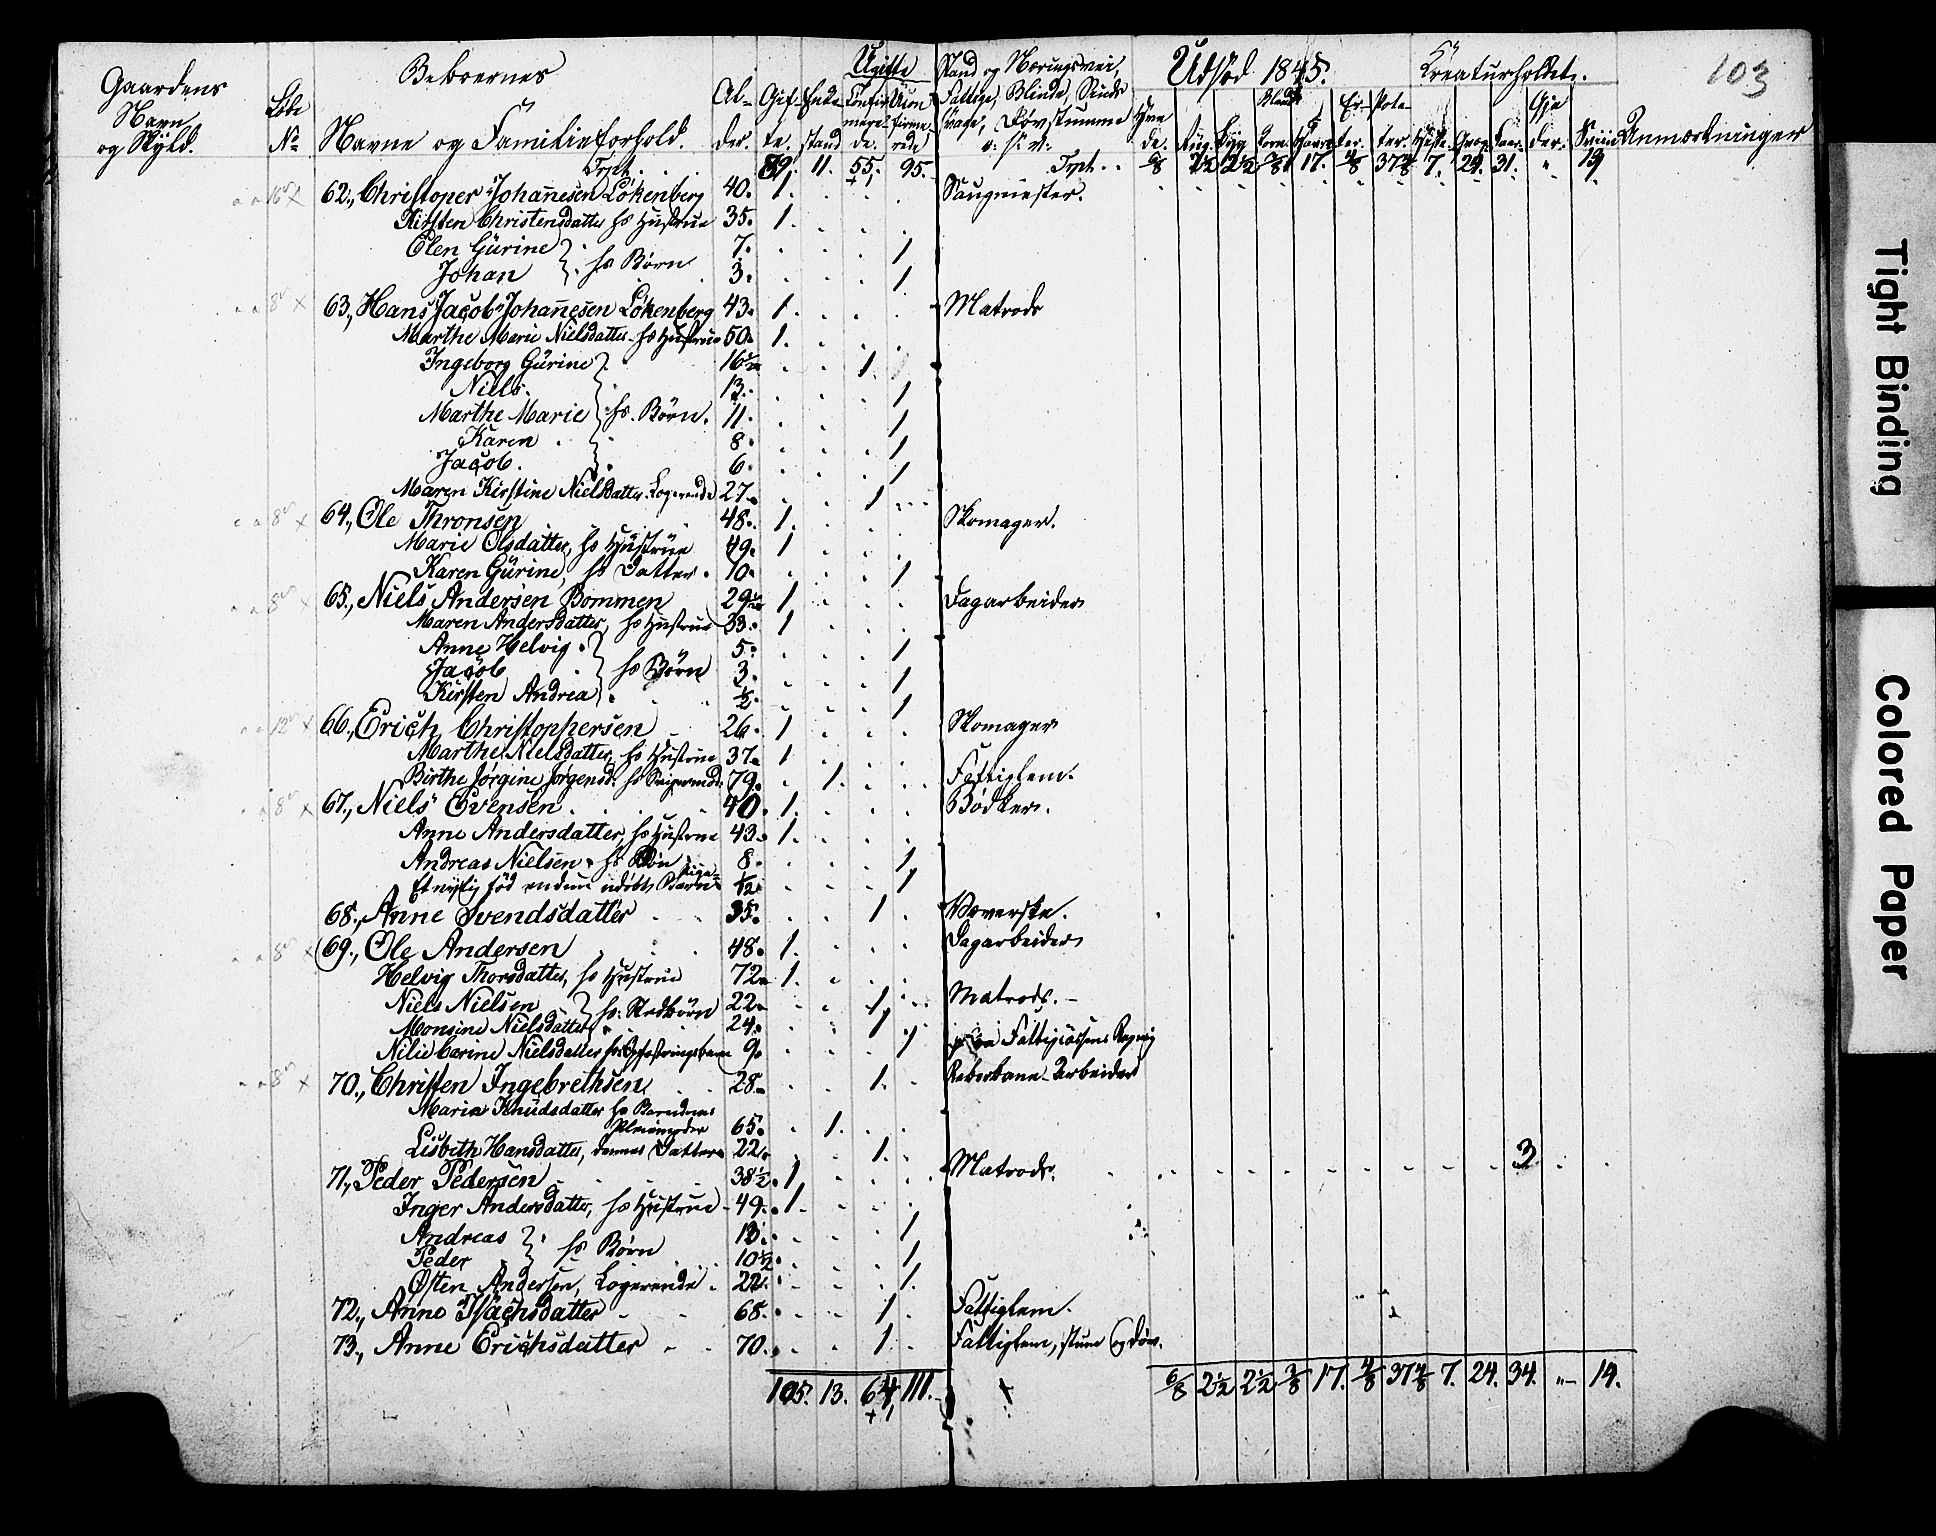 103
Gaardens Navn og Skyld.
Løbe No
Beboernes
Navne og Familieforhold.
Alder.
Gifte.
Enkestand
Ugifte
Confirmerede.
Uconfirmerede
Stand og Næringsvei, Fattige, Blinde, Sindssvage, Døvstumme
Udsæd 1845.
Hvede. Rug. Byg Blandkorn. Havre Erter. Poteter.
Creaturholdet.
Heste. Storf. Faar. Gjeder. Sviin
Anmærkninger
Trpt. 89. 11. 55. 95. Trpt. 6/8 2½ 2½ 3/8 17. 4/8 37 4/8 7. 24. 31. " 19
62., Christoper Johanesen Lökenberg 40. 1. Saugmester.
Kirsten Christensdatter hs Hustrue 35. 1.
Olen Gürine } hs Børn 7. 1
Johan 3. 1
63., Hans Jacob Johanesen Lökenberg 43. 1. Matrods
Marthe Marie Nielsdatter hs Hustrue 50. 1.
Ingeborg Gürine } hs. Børn. 16½ 1.
Niels. 13. 1
Marthe Marie 11. 1
Karen 8. 1
Jacob. 6. 1
Maren Kirstine Nielsdatter. Logerende 27. 1
64., Ole Thronsen 48. 1. Skomager.
Marie Olsdatter, hs Hustrue 49. 1
Karen Gürine, hs Datter. 10. 1
65., Niels Andersen Bommen 29 1 Dagarbeider
Maren Andersdatter, hs Hustrue 33. 1
Anne Helvig } hs Børn 5. 1
Jacob 3. 1
Kirsten Andrea ½. 1
66., Erich Christophersen 26. 1 Skomager
Marthe Nielsdatter, hs Hustrue 37. 1
Birthe Jørgine Jørgensd. hs Svigermod. 79. 1. Fattiglem.
67., Niels Evensen 40. 1. Bødker.
Anne Andersdatter, hs Hustrue 43. 1.
Andreas Nielsen, hs Søn 8. 1
Et nylig fød endnu udøbt Pige-Barn 1/12 1
68., Anne Svendsdatter 35. 1 Væverske.
69., Ole Andersen 48. 1. Dagarbeider
Helvig Thorsdatter, hs Hustrue 72. 1.
Niels Nielsen } hs. Stedbørn 22. 1 Matrods.
Monsine Nielsdatter 24. 1
Nilie Carine Nielsdatter hs Opfostringsbarn 9. 1 Fattigcassens Regning
70., Christen Ingebrethsen 28. 1. Reberbane-Arbeider
Maria Knudsdatter hs Barndoms Pleiemoder 65. 1.
Lisbeth Hansdatter, dennes Datter 22. 1.
71., Peder Pedersen 38½. 1 Matrods. 3
Inger Andersdatter, hs Hustrue 49. 1.
Andreas } hs Børn 13. 1
Peder 10½. 1
Østen Andersen, Logerende. 22. 1.
72., Anne Isachsdatter 68. 1. Fattiglem.
73., Anne Erichsdatter 70. 1. Fattiglem, stum og døv.
105. 13. 64. 111. 6/8 2½ 2½ 3/8 17. 4/8 37 4/8 7. 24. 34. " 19.
Tight Binding
Colored Paper